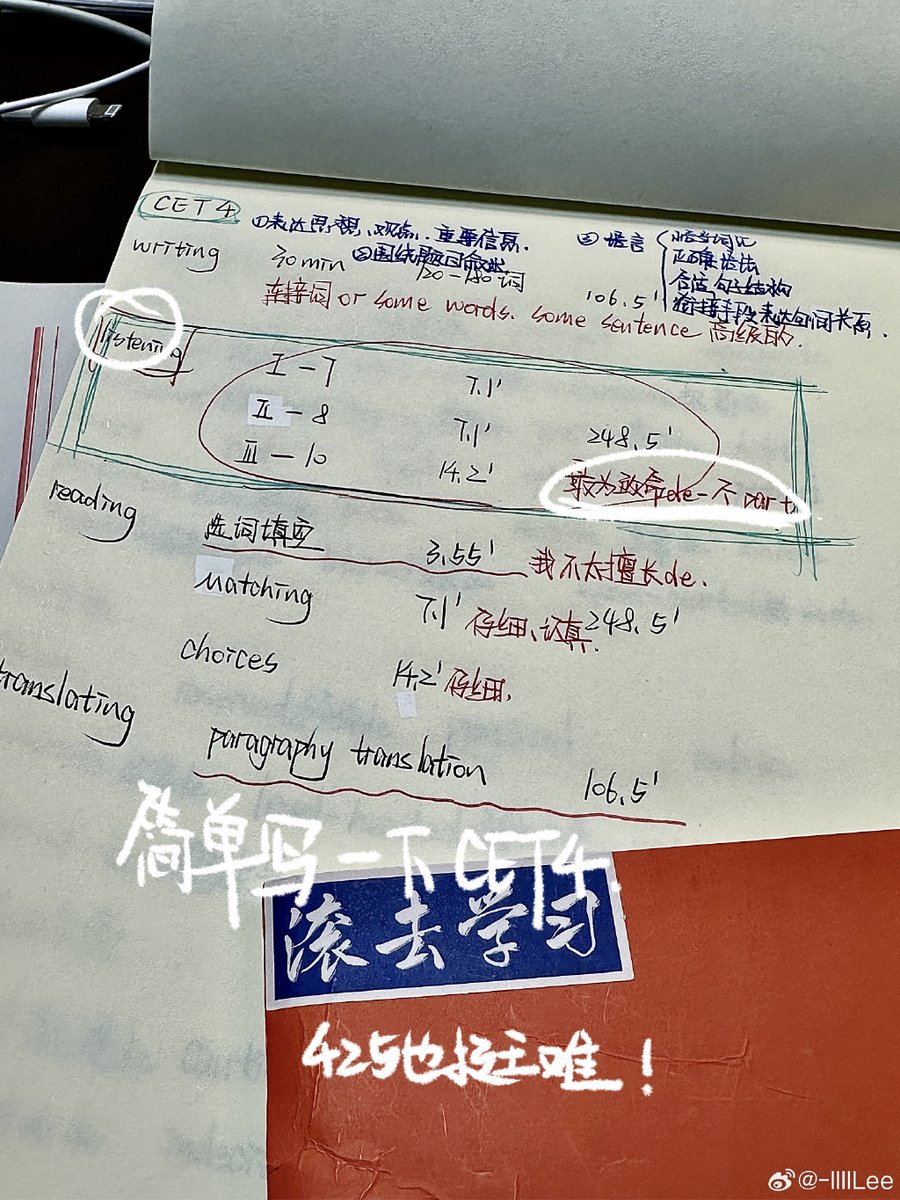 CET4 ①表达思想、观点、重要信息. ③语言
恰当词汇
正确语法
合适句子结构
衔接手段表达句间关系.
writing 30min ②围绕题目叙述
120-180词 106.5'
连接词 or some words. some sentence 高级的.
listening I-7 7.1'
II-8 7.1' 248.5'
III-10 14.2' 较为致命de一个part
reading 选词填空 3.55' 我不太擅长de.
Matching 7.1' 仔细、认真. 248.5'
choices 14.2' 仔细.
translating paragraphy translation 106.5'
简单写一下CET4.
滚去学习
425也挺难!
@-IIIILee